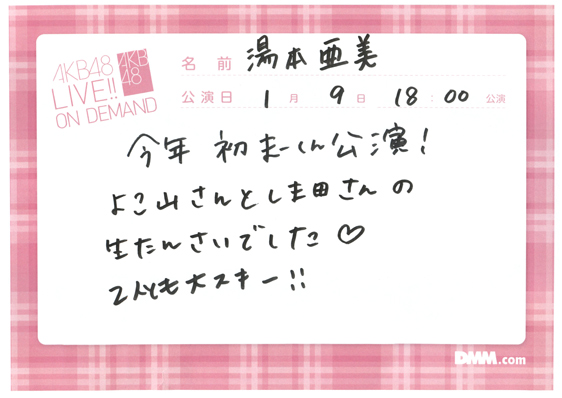 AKB48
LIVE!!
ON DEMAND
AKB
48
名前 湯本亜美
公演日 1月 9日 18:00 公演
今年 初まーくん公演!
よこ山さんとしま田さんの
生たんさいでした♡
2人とも大スキー!!
DMM.com